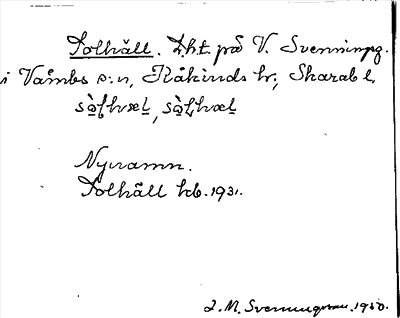 Solhäll. Lht. på V. Svenningg.
i Våmbs s:n, Kåkinds hr, Skarab l.
sò̤ḷhxeḷ, sò̤ḷhxeḷ
Nynamn.
Solhäll hb. 1931.
L. M. Svenungsson. 1950.